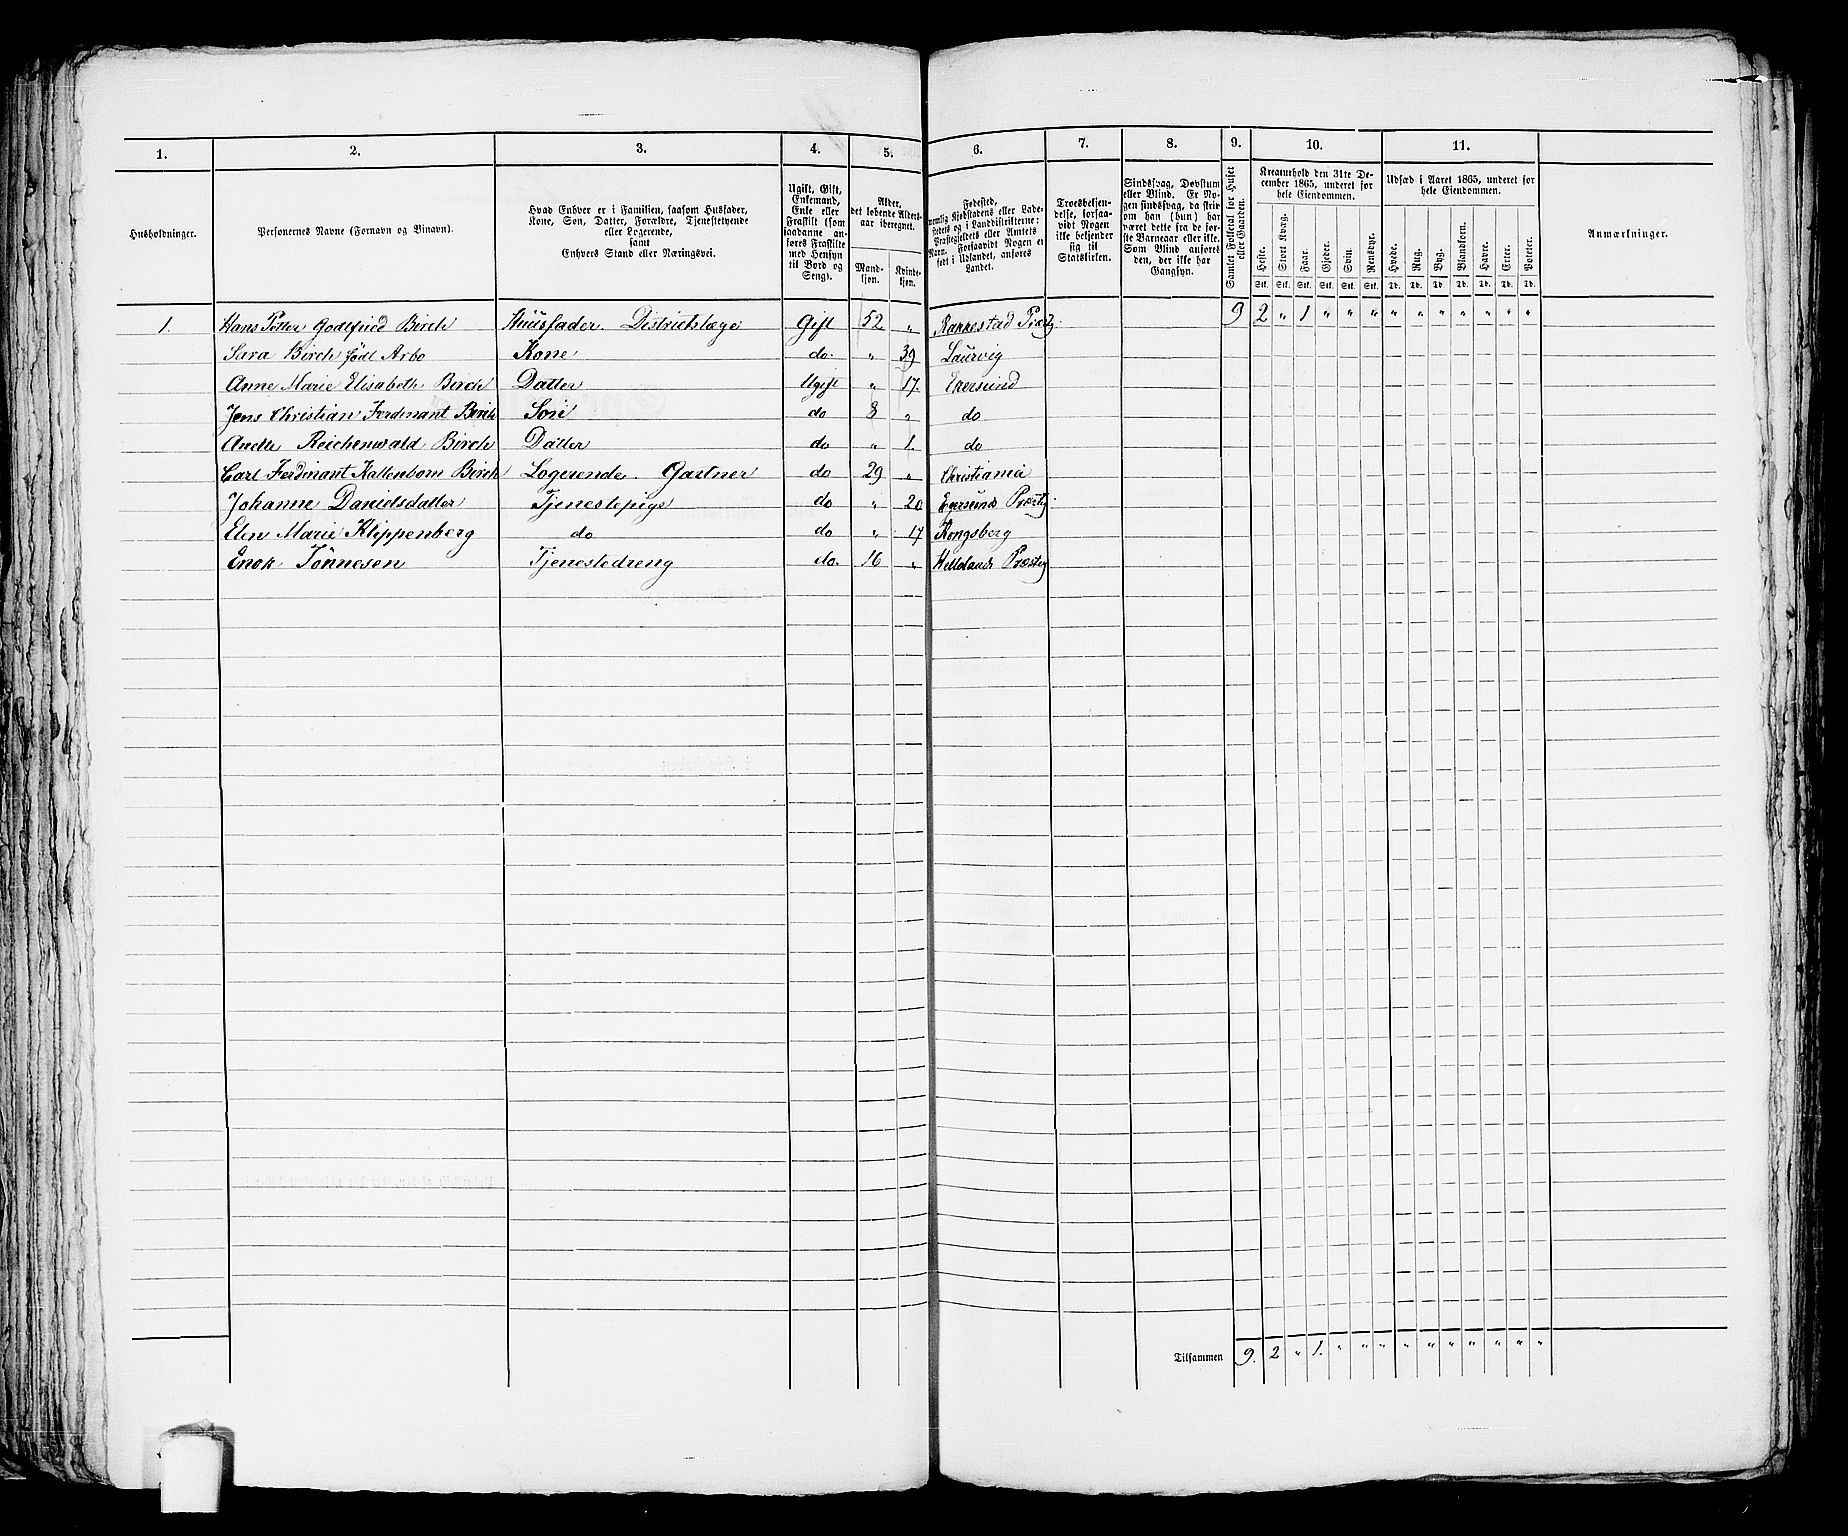 1. 2. 3. 4. 5. 6. 7. 8. 9. 10. 11.
Husholdninger.
Personernes Navne (Fornavn og Binavn).
Hvad Enhver er i Familien, saasom Husfader,
Kone, Søn, Datter, Forældre, Tjenestetyende
eller Logerende,
samt
Enhvers Stand eller Næringsvei.
Ugift, Gift,
Enkemand,
Enke eller
Fraskilt (som
saadanne an-
føres Fraskilte
med Hensyn
til Bord og
Seng).
Alder,
det løbende Alders-
aar iberegnet.
Mand-
kjøn.
Kvinde-
kjøn.
Fødested,
nemlig Kjøbstadens eller Lade-
stedets og i Landdistrikterne:
Præstegjeldets eller Annexets
Navn. Forsaavidt Nogen er
født i Udlandet, anføres
Landet.
Troesbekjen-
delse, forsaa-
vidt Nogen
ikke bekjender
sig til
Statskirken.
Sindssvag, Døvstum
eller Blind. Er No-
gen sindssvag, da skri-
om han (hun) har
været dette fra de før-
ste Barneaar eller ikke.
Som Blind anføres
den, der ikke har
Gangsyn.
Samlet Folketal for Huset
eller Gaarden.
Kreaturhold den 31te De-
cember 1865, underet for
hele Eiendommen.
Heste. Stort Kvæg. Faar. Gjeder. Svin. Rensdyr.
Stk. Stk. Stk. Stk. Stk. Stk.
Udsæd i Aaret 1865, underet for
hele Eiendommen.
Hvede. Rug. Byg. Blandkorn. Havre. Erter. Poteter.
Td. Td. Td. Td. Td. Td. Td.
Anmærkninger.
1. Hans Petter Godtfried Birch Huusfader. Districtslæge Gift 52 " Rakkestad Præstg. 9 2 " 1 " " " " " " " " " "
Sara Birch født Arbo Kone do. " 39 Laurvig
Anne Marie Elisabeth Birch Datter Ugift " 17. Ekersund
Jens Christian Ferdinant Birch Søn do 8 " do
Anette Reichenwald Birch Datter do " 1. do
Carl Ferdinant Kaltenborn Birch Logerende. Gartner do 29 " Christiania
Johanne Danielsdatter Tjenestepige do " 20 Egersunds Præstg.
Elen Marie Klippenberg do do " 17 Kongsberg
Enok Tönnesen Tjenestedreng do. 16 " Hellelands Præstg
Tilsammen 9. 2 " 1. " " " " " " " " " "